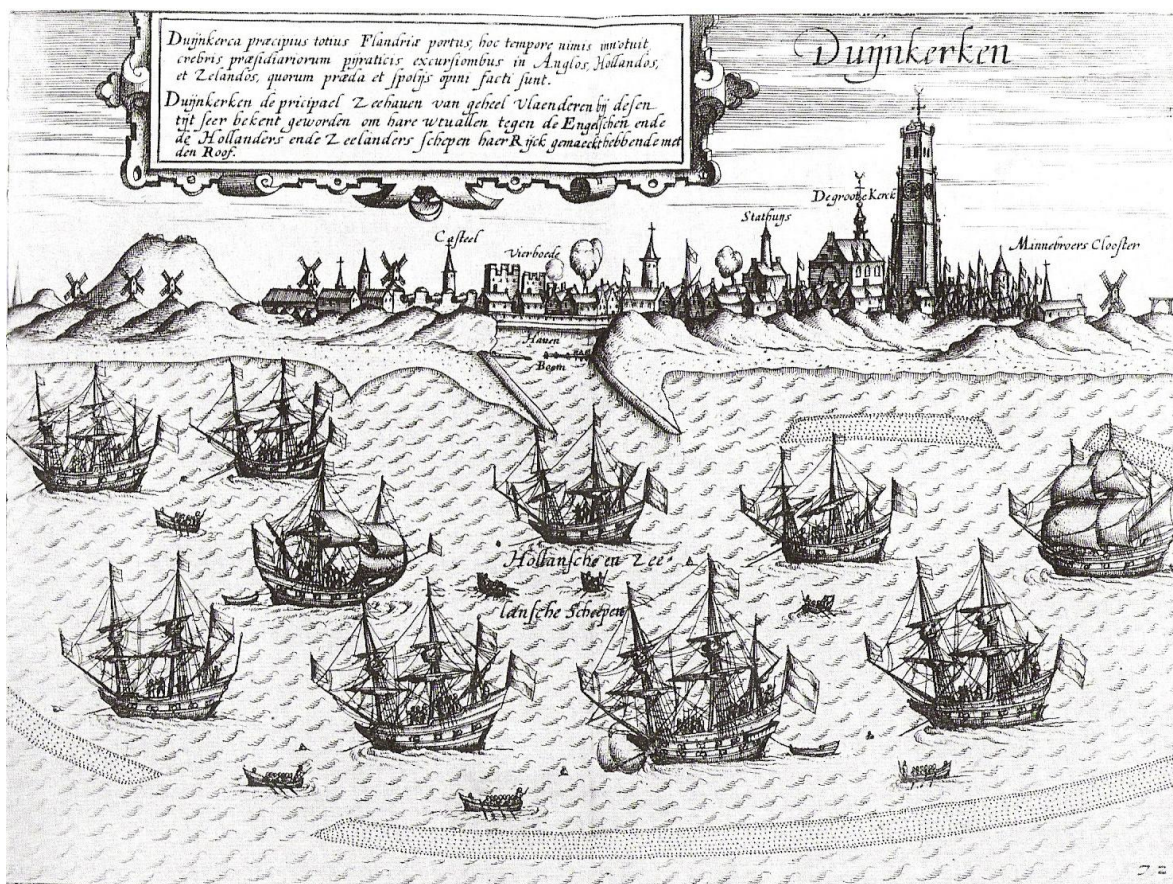 Duijnkerca præcipius totius Flandriæ portus, hoc tempore nimis innotuit
crebris præsidiariorum pyraticis excursionibus in Anglos, Hollandos,
et Zelandos, quorum præda et spolijs opini facti sunt.
Duijnkerken de pricipael Zeehauen van geheel Vlaenderen bij desen
tijt seer bekent geworden om hare wtuallen tegen de Engelschen ende
de Hollanders ende Zeelanders schepen haer Rijck gemaeckt hebbende met
den Roof.
Duijnkerken
De groote Kerck
Stathuijs
Casteel
Vierboede
Minnebroers Clooster
Hauen
Boom
Hollansche en Zee
lansche Scheepen